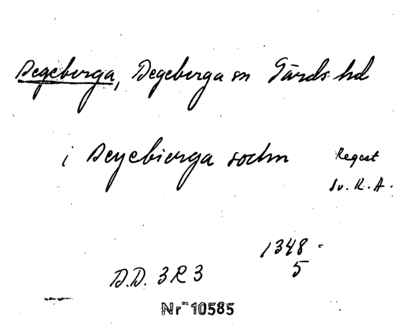 Degeberga, Degeberga sn Gärds hd
i Deyebierga sochn
Regest
Sv. R. A.
1348
5
D.D. 3 R 3
Nr 10585